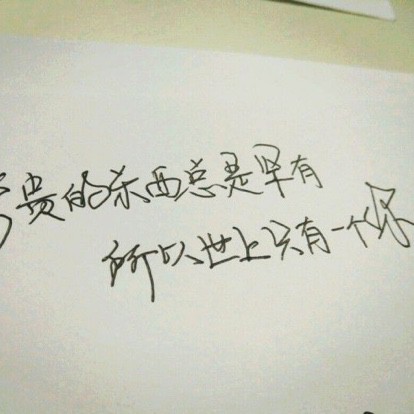 贵的东西总是罕有
所以世上只有一个你